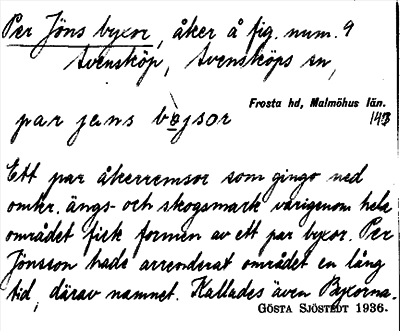 Per Jöns byxor, åker å fig. num. 9
Svensköp, Svensköps sn,
Frosta hd, Malmöhus län.
par jens bǫ̀jsor
Ett par åkerremsor som gingo ned
omkr. ängs- och skogsmark varigenom hela
området fick formen av ett par byxor. Per
Jönsson hade arrenderat området en lång
tid, därav namnet. Kallades även Byxorna.
GÖSTA SJÖSTEDT 1936.